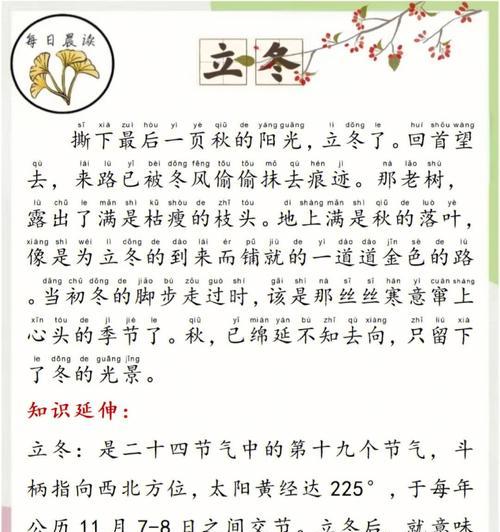 每日晨读
立冬
sī xià zuì hòu yī yè qiū de yáng guāng lì dōng le huí shǒu wàng
撕下最后一页秋的阳光，立冬了。回首望
qù lái lù yǐ bèi dōng fēng tōu tōu mǒ qù hén jì nà lǎo shù
去，来路已被冬风偷偷抹去痕迹。那老树，
lù chū le mǎn shì kū shòu de zhī tóu dì shàng mǎn shì qiū de luò yè
露出了满是枯瘦的枝头。地上满是秋的落叶，
xiàng shì wéi lì dōng de dào lái ér pū jiù de yī dào dào jīn sè de lù
像是为立冬的到来而铺就的一道道金色的路
dāng chū dōng de jiǎo bù zǒu guò shí gāi shì nà sī sī hán yì cuān shàng
。当初冬的脚步走过时，该是那丝丝寒意窜上
xīn tóu de jì jié le qiū yǐ mián yán bù zhī qù xiàng zhǐ liú xià
心头的季节了。秋，已绵延不知去向，只留下
le dōng de guāng jǐng
了冬的光景。
知识延伸：
立冬：是二十四节气中的第十九个节气，斗
柄指向西北方位，太阳黄经达225°，于每年
公历11月7-8日之间交节。立冬后，就意味